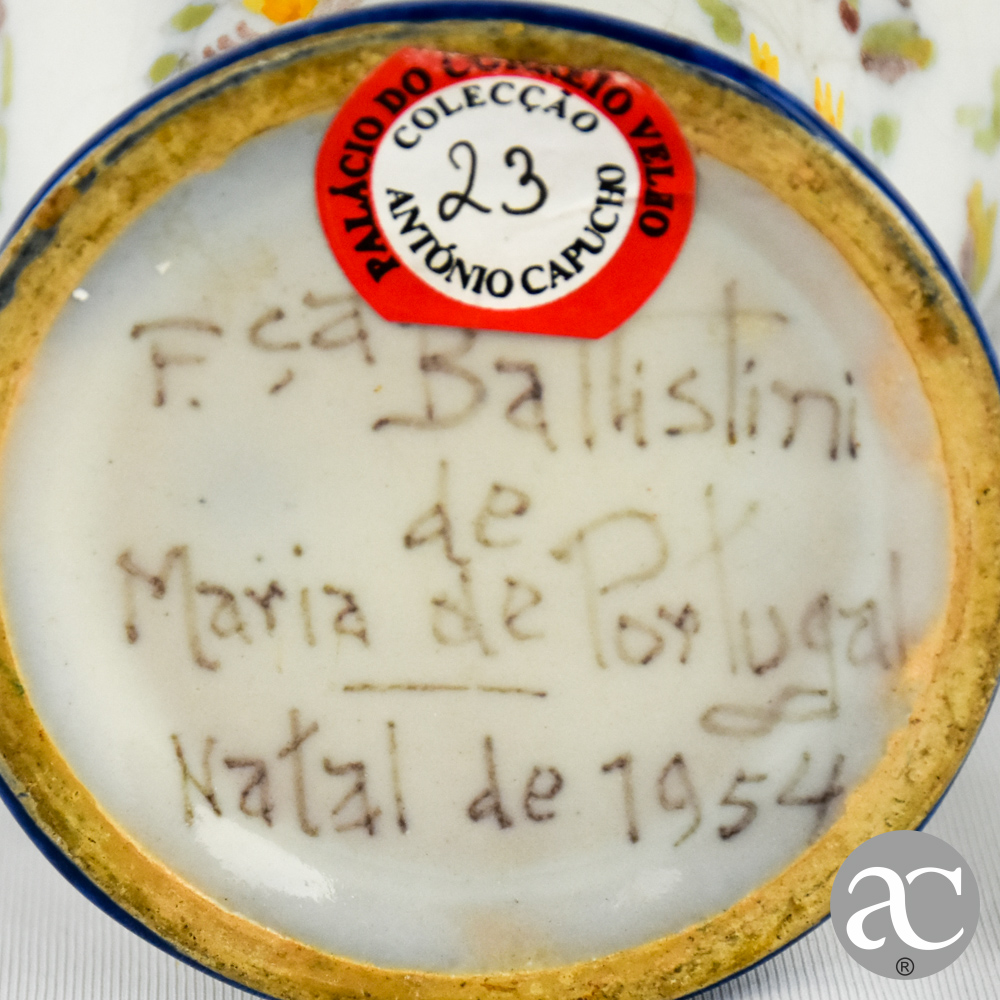 PALÁCIO DO CORREIO VELHO
COLECÇÃO
23
ANTÓNIO CAPUCHO
F. çã Battistini
de
Maria de Portugal
Natal de 1954
ac
®